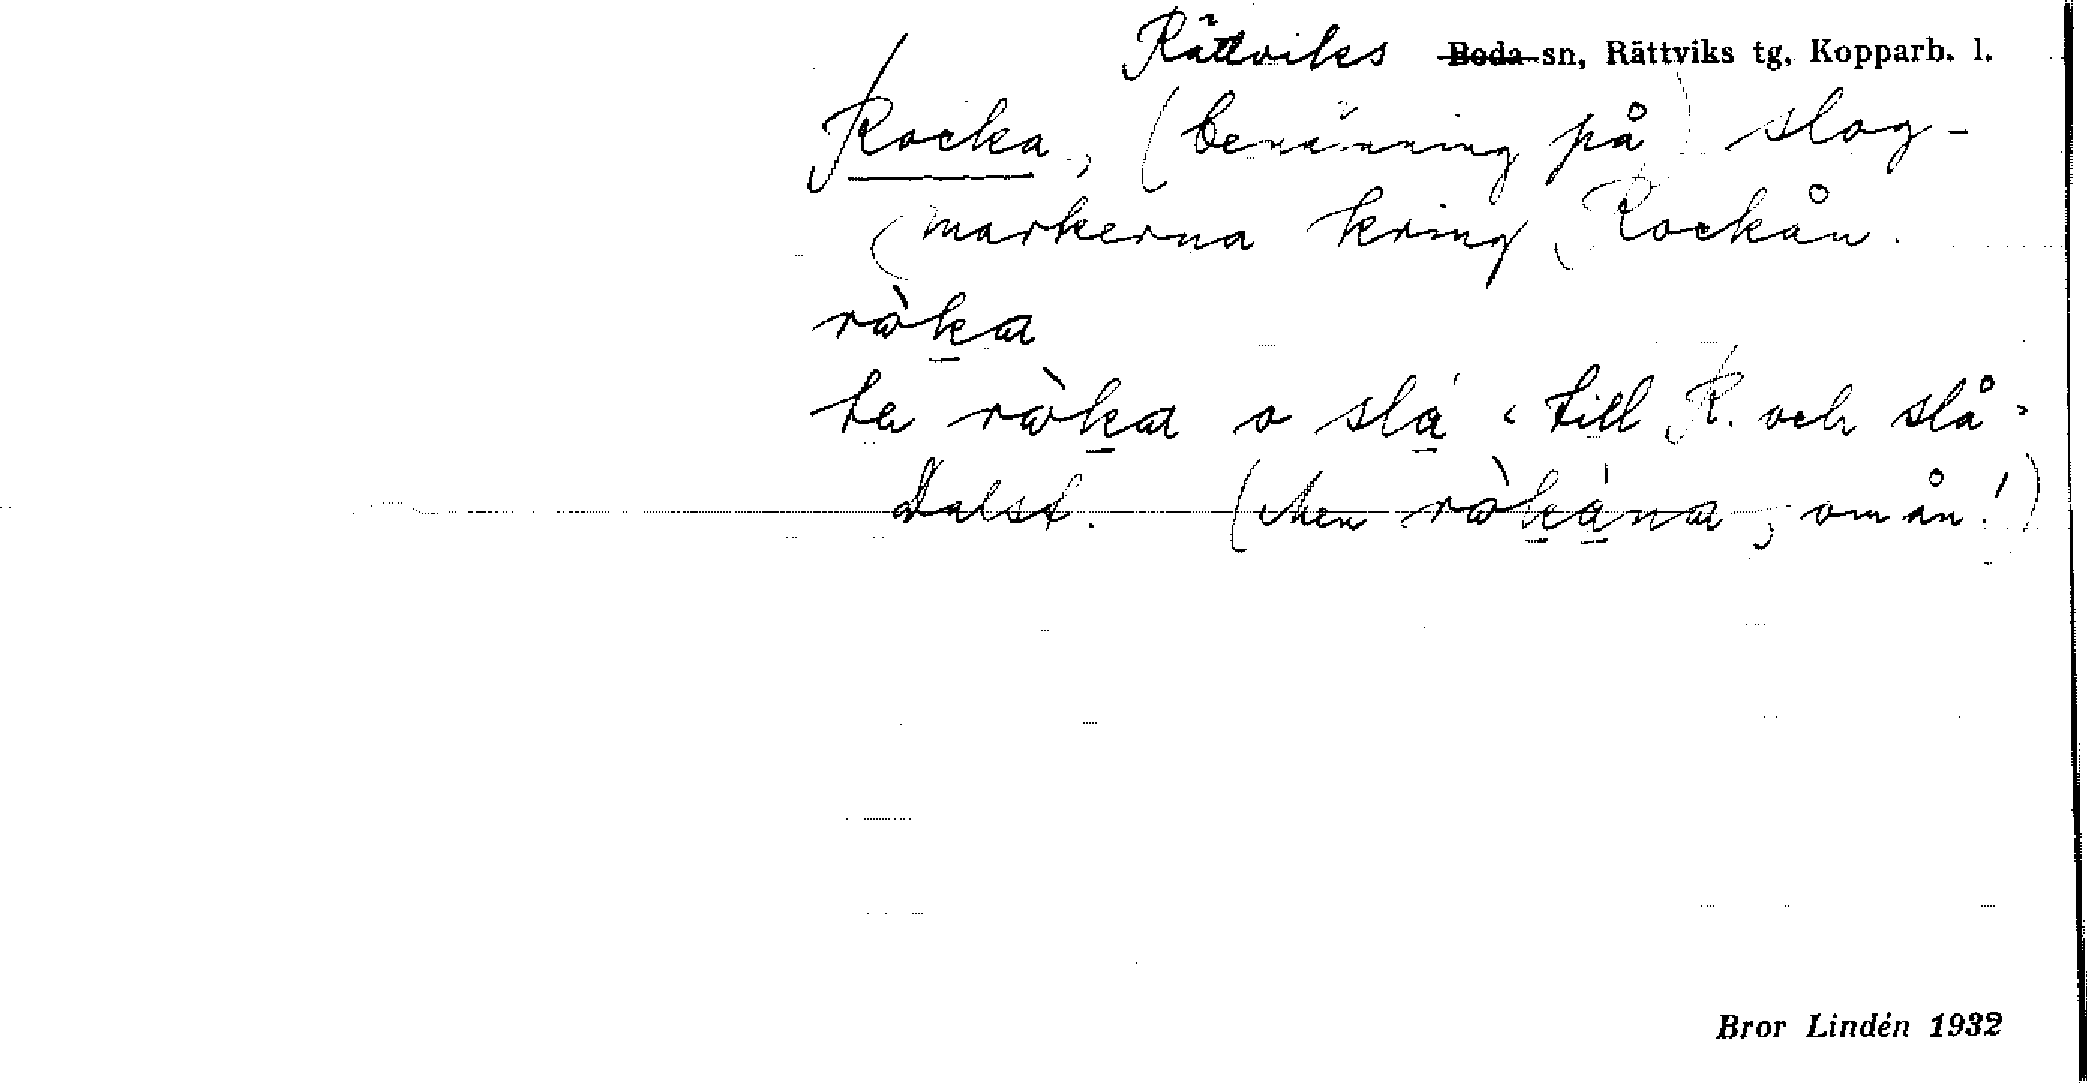 Rättviks Boda sn, Rättviks tg, Kopparb. l.
Rocka, (benämning på) slog-
(markerna kring Rockån.
ròka
te ròka o slá ‘till R. och slå’
Dalst. (Men ròkána, om ån!)
Bror Lindén 1932